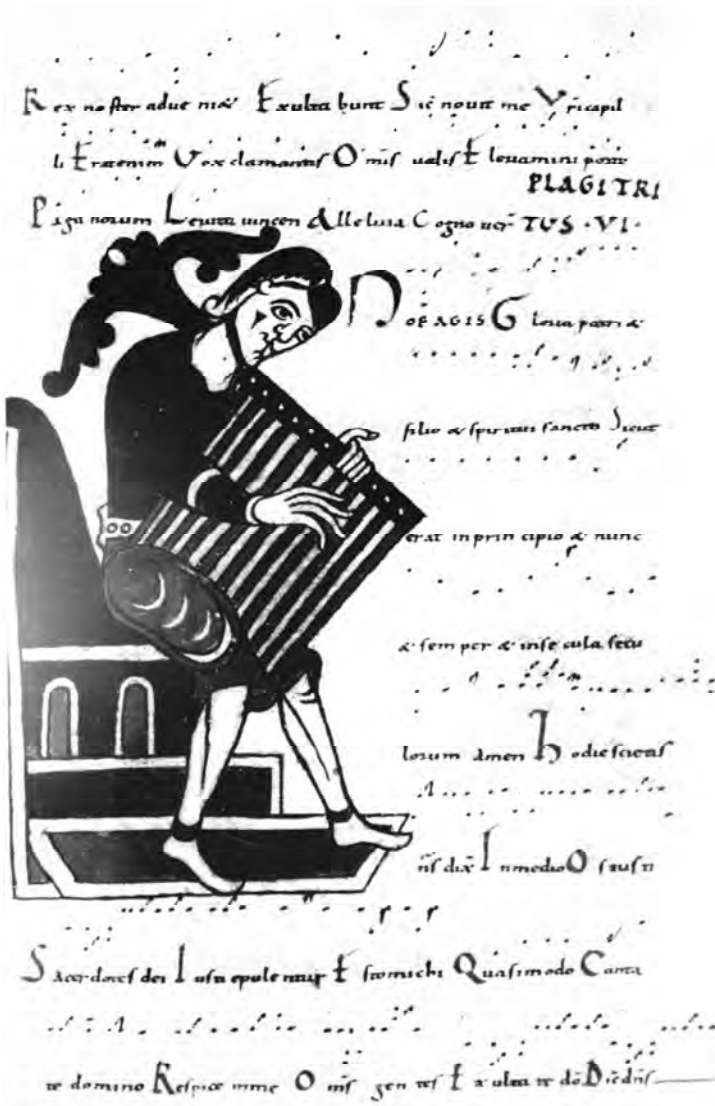 Rex noster adue niæ Exulta bunt Sic nouit me Vri capil
li Etratenim Vox clamantis Omis uallis Eleuamini porte
PLAGI TRI
Paga norum Leuita uincen Alleluia Cogno uer TUS · VI ·
NOEAGIS Gloria patri &
filio & spiritui sancto Sicut
erat in prin cipio & nunc
& sem per & inse cula secu
lorum amen Hodie scietis
nīs dix̄ In medio Os iusti
Sacerdotes dei Iusti epulentur Esto michi Quasi modo Canta
te domino Respice inme Omīs gen tes Exulta te dō Dic̄ dn̄s